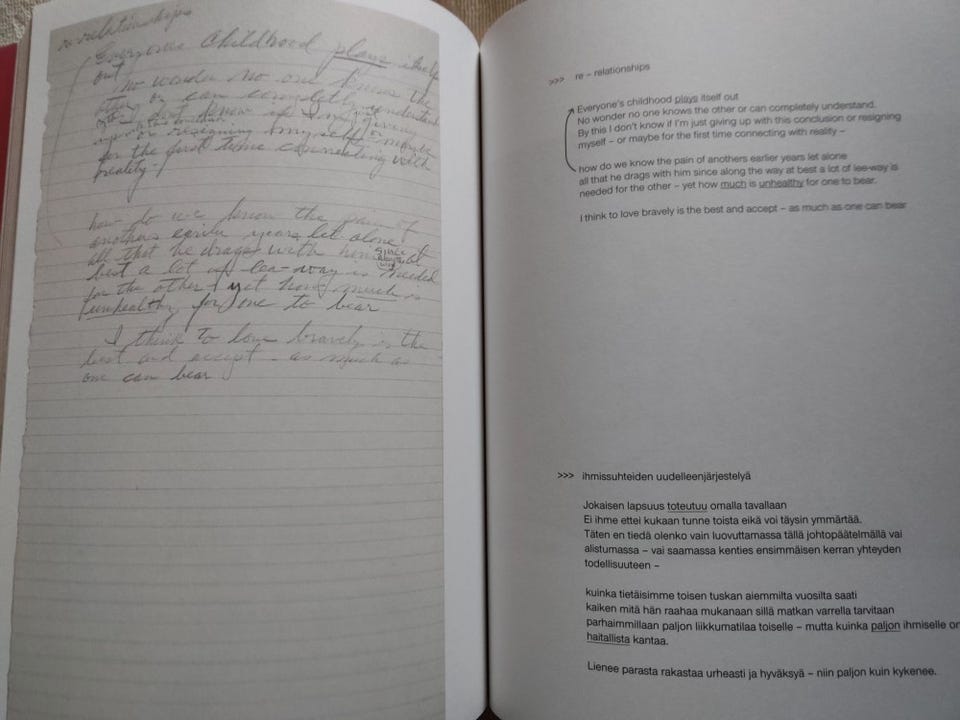 re relationships
Everyones Childhood plays itself
out
No wonder no one knows the
other or can completely understand
By this I don't know if I'm just giving
up with this conclusion
or resigning myself – or maybe
for the first time connecting with
reality –
how do we know the pain of
anothers earlier years let alone
all that he drags with him since along the way at
best a lot of lee-way is needed
for the other – yet how much is
unhealthy for one to bear
I think to love bravely is the
best and accept – as much as
one can bear
>>> re – relationships
Everyone's childhood plays itself out
No wonder no one knows the other or can completely understand.
By this I don't know if I'm just giving up with this conclusion or resigning
myself – or maybe for the first time connecting with reality –
how do we know the pain of anothers earlier years let alone
all that he drags with him since along the way at best a lot of lee-way is
needed for the other – yet how much is unhealthy for one to bear.
I think to love bravely is the best and accept – as much as one can bear
>>> ihmissuhteiden uudelleenjärjestelyä
Jokaisen lapsuus toteutuu omalla tavallaan
Ei ihme ettei kukaan tunne toista eikä voi täysin ymmärtää.
Täten en tiedä olenko vain luovuttamassa tällä johtopäätelmällä vai
alistumassa – vai saamassa kenties ensimmäisen kerran yhteyden
todellisuuteen –
kuinka tietäisimme toisen tuskan aiemmilta vuosilta saati
kaiken mitä hän raahaa mukanaan sillä matkan varrella tarvitaan
parhaimmillaan paljon liikkumatilaa toiselle – mutta kuinka paljon ihmiselle on
haitallista kantaa.
Lienee parasta rakastaa urheasti ja hyväksyä – niin paljon kuin kykenee.